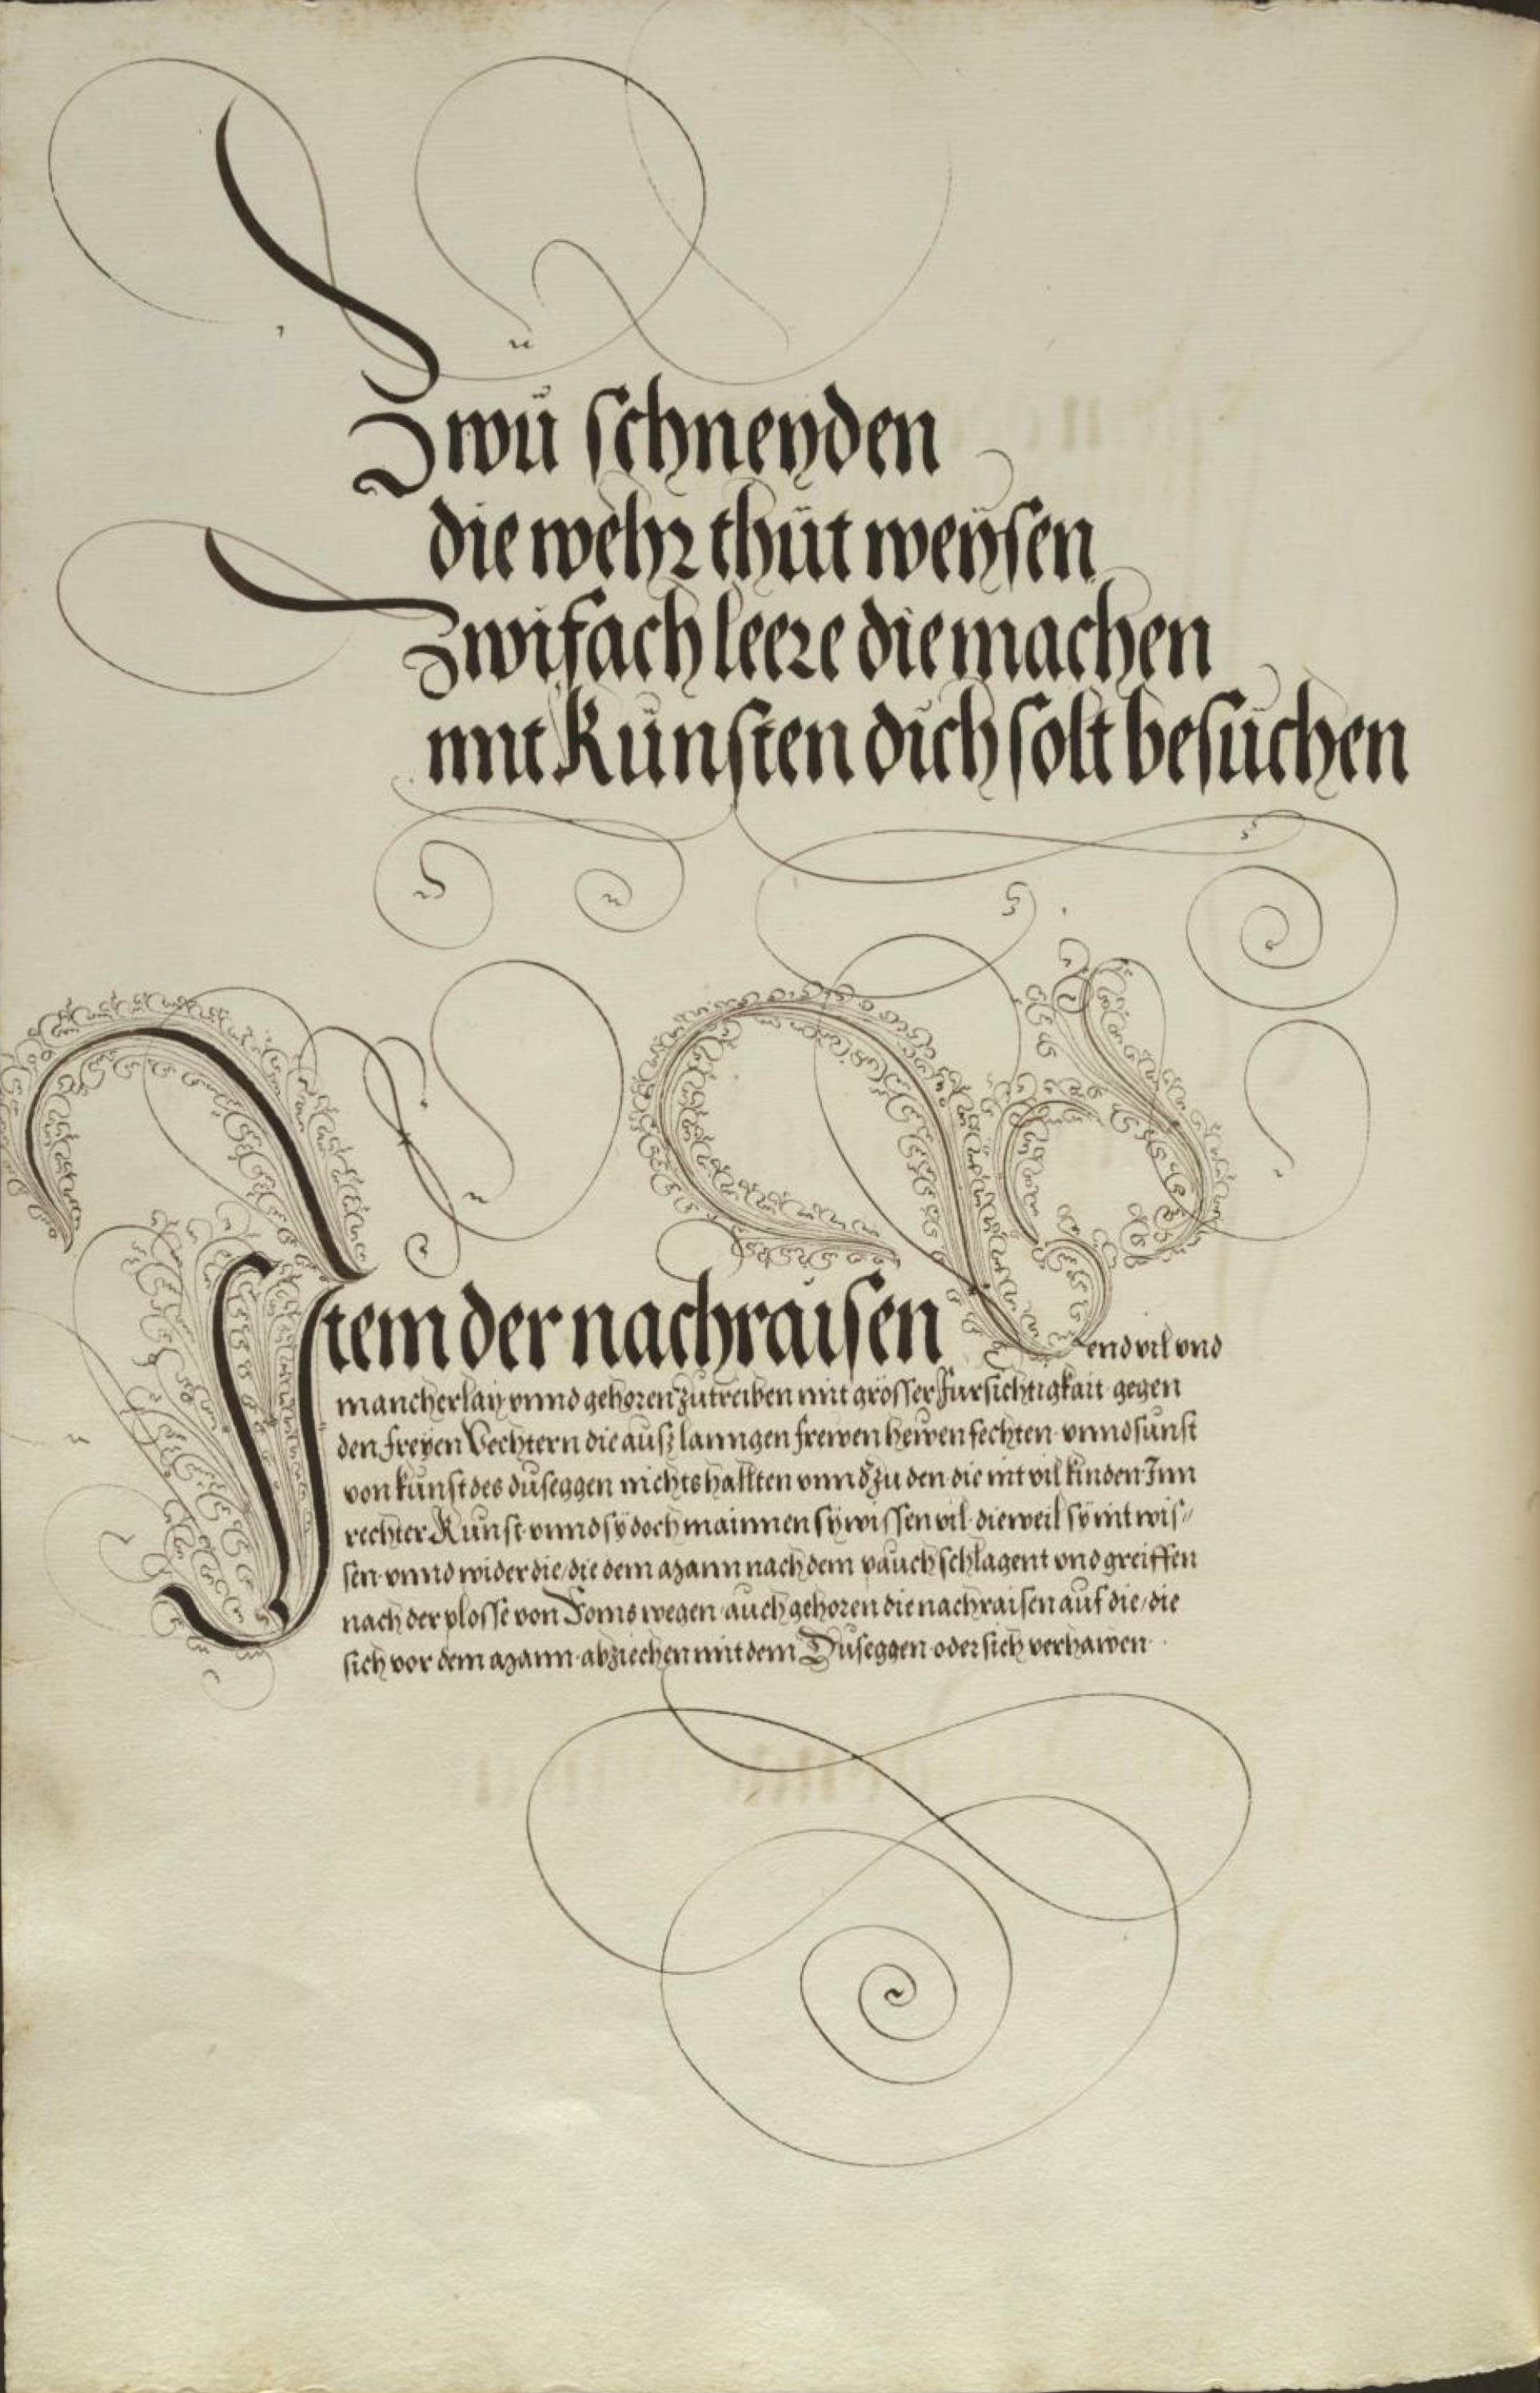 Zwů schneyden
die wehr thůt weysen
Zwifach leere die machen
mit Kunsten dich solt besůchen
Item der nachraisen Send vil vnd
mancherlay vnnd gehoren zutreiben mit grösser fursichtigkait gegen
den freyen Vechtern die ausz lanngen freyen hewen fechten vnnd sunst
von kunst des duseggen nichts hallten vnnd zu den die nit vil kinden Inn
rechter Kunst vnnd sy doch mainnen sy wissen vil dieweil sy nit wis-
sen vnnd wider die/die dem Mann nach dem pauch schlagent vnd greiffen
nach der plosse von Foms wegen auch gehoren die nachraisen auf die/die
sich vor dem Mann abziechen mit dem Duseggen oder sich verhawen